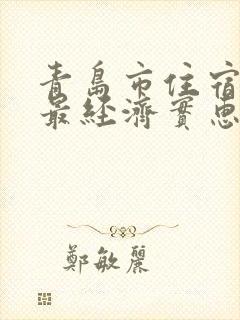 青島市住宿
最經濟實惠
鄭敏麗